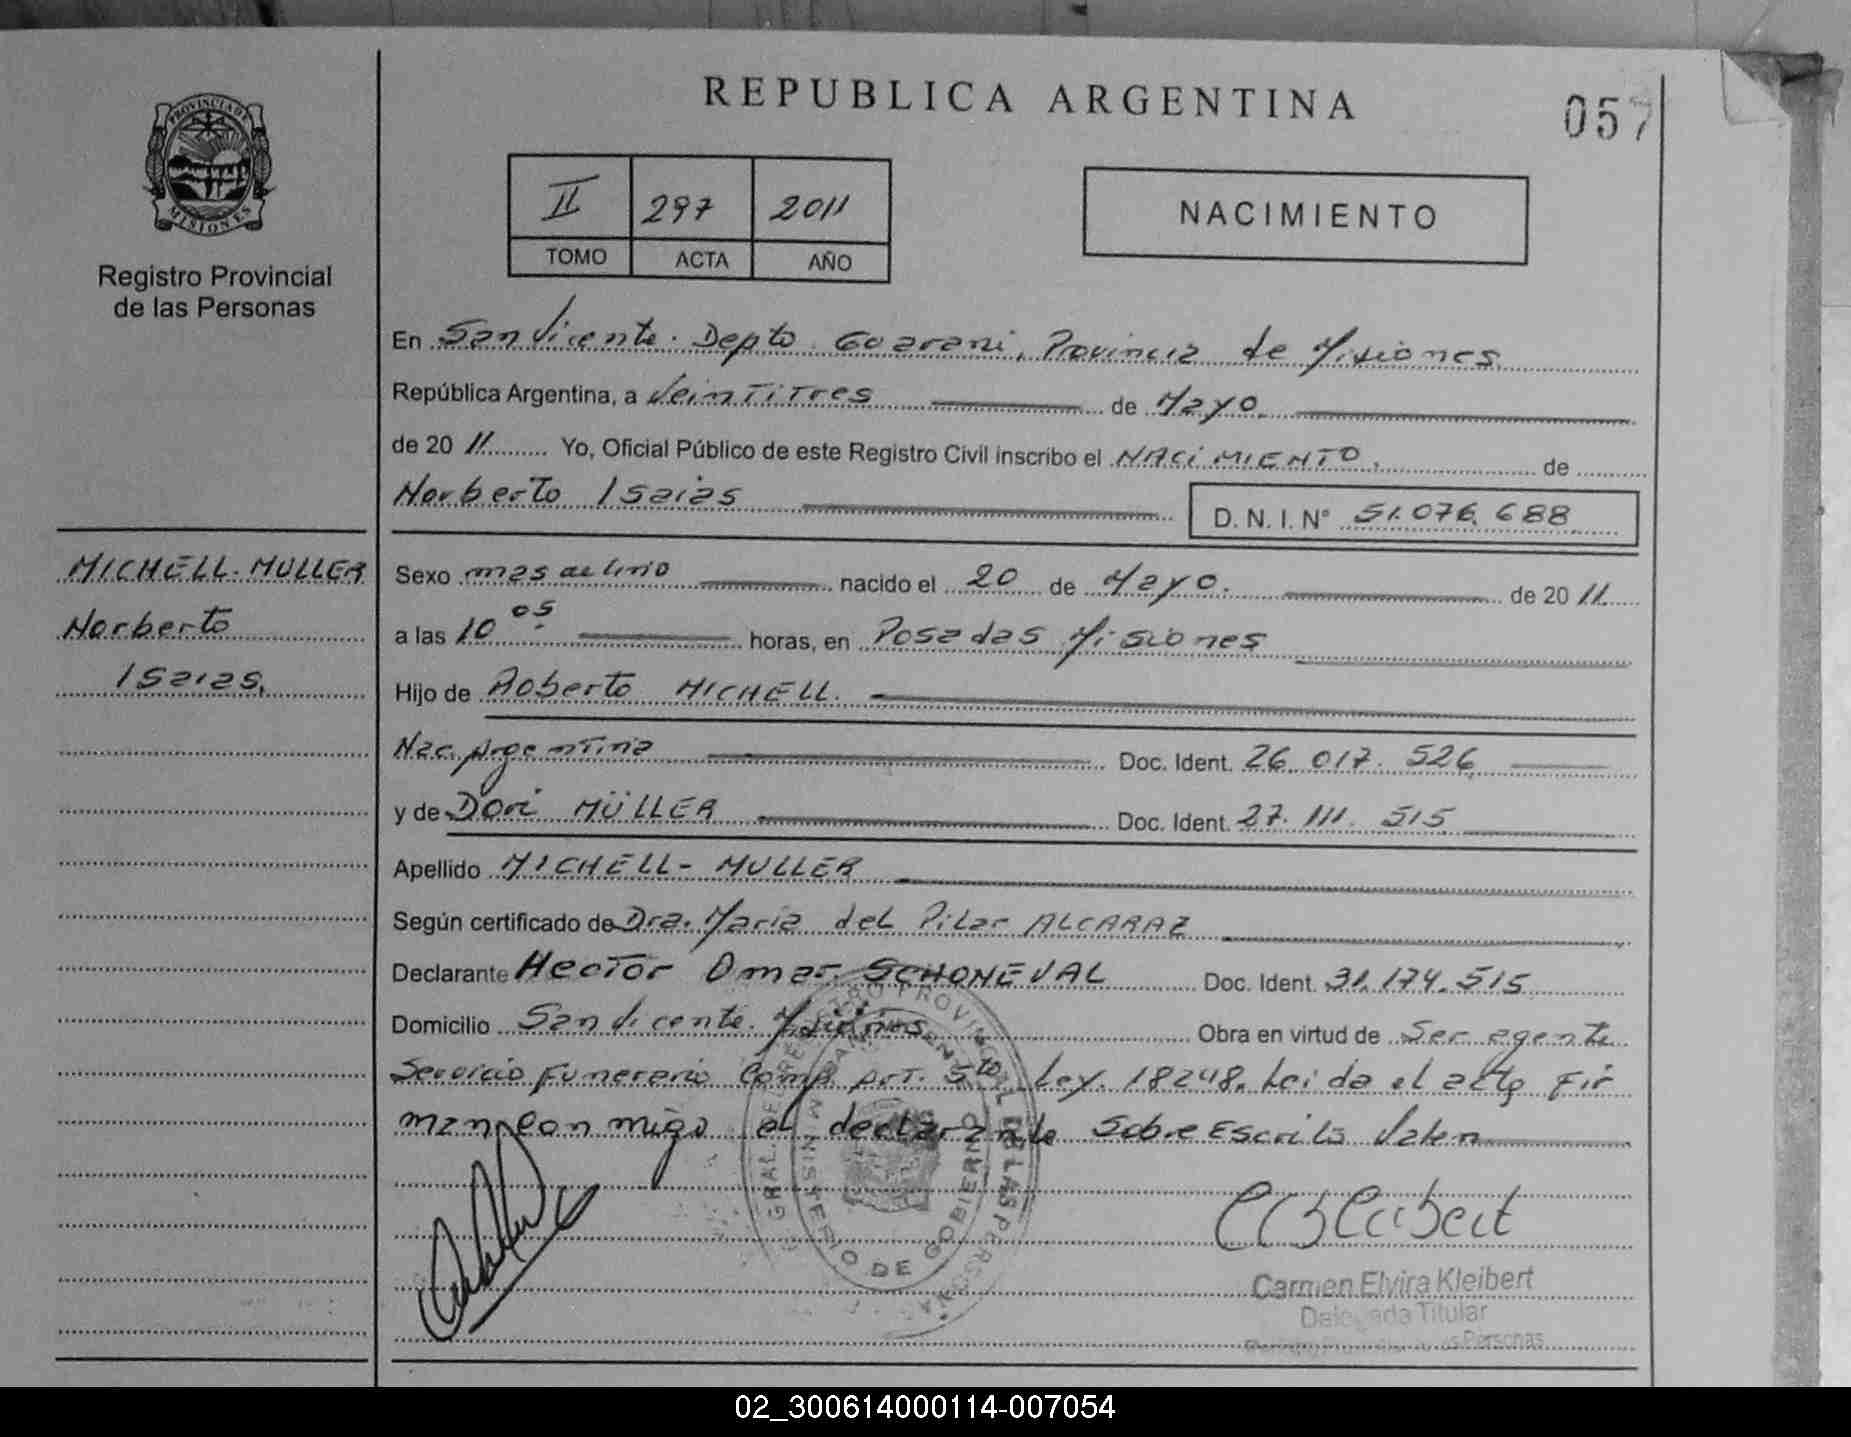 REPUBLICA ARGENTINA
057
PROVINCIA DE
MISIONES
Registro Provincial
de las Personas
II 297 2011
TOMO ACTA AÑO
NACIMIENTO
En San Vicente. Depto Guarani, Provincia de Misiones
República Argentina, a Veintitres de Mayo
de 2011 Yo, Oficial Público de este Registro Civil inscribo el NACIMIENTO, de
Norberto Isaias D. N. I. N° 51.076.688
MICHELL-MULLER
Norberto
Isaias.
Sexo masculino nacido el 20 de Mayo. de 2011.
a las 10 05 horas, en Posadas Misiones
Hijo de Roberto MICHELL.
Nac. Argentina Doc. Ident. 26.017.526
y de Dori MÜLLER Doc. Ident. 27.111.515
Apellido MICHELL-MULLER
Según certificado de Dra. Maria del Pilar ALCARAZ
Declarante Hector Omar SCHONEVAL Doc. Ident. 31.174.515
Domicilio San Vicente. Misiones Obra en virtud de Ser agente
Servicio Funerario Comp Art. 5to Ley. 18248. Leida el acta Fir
man conmigo el declarante Sobre Escrito Valen
MINISTERIO DE GOBIERNO
Carmen Elvira Kleibert
Delegada Titular
02_300614000114-007054